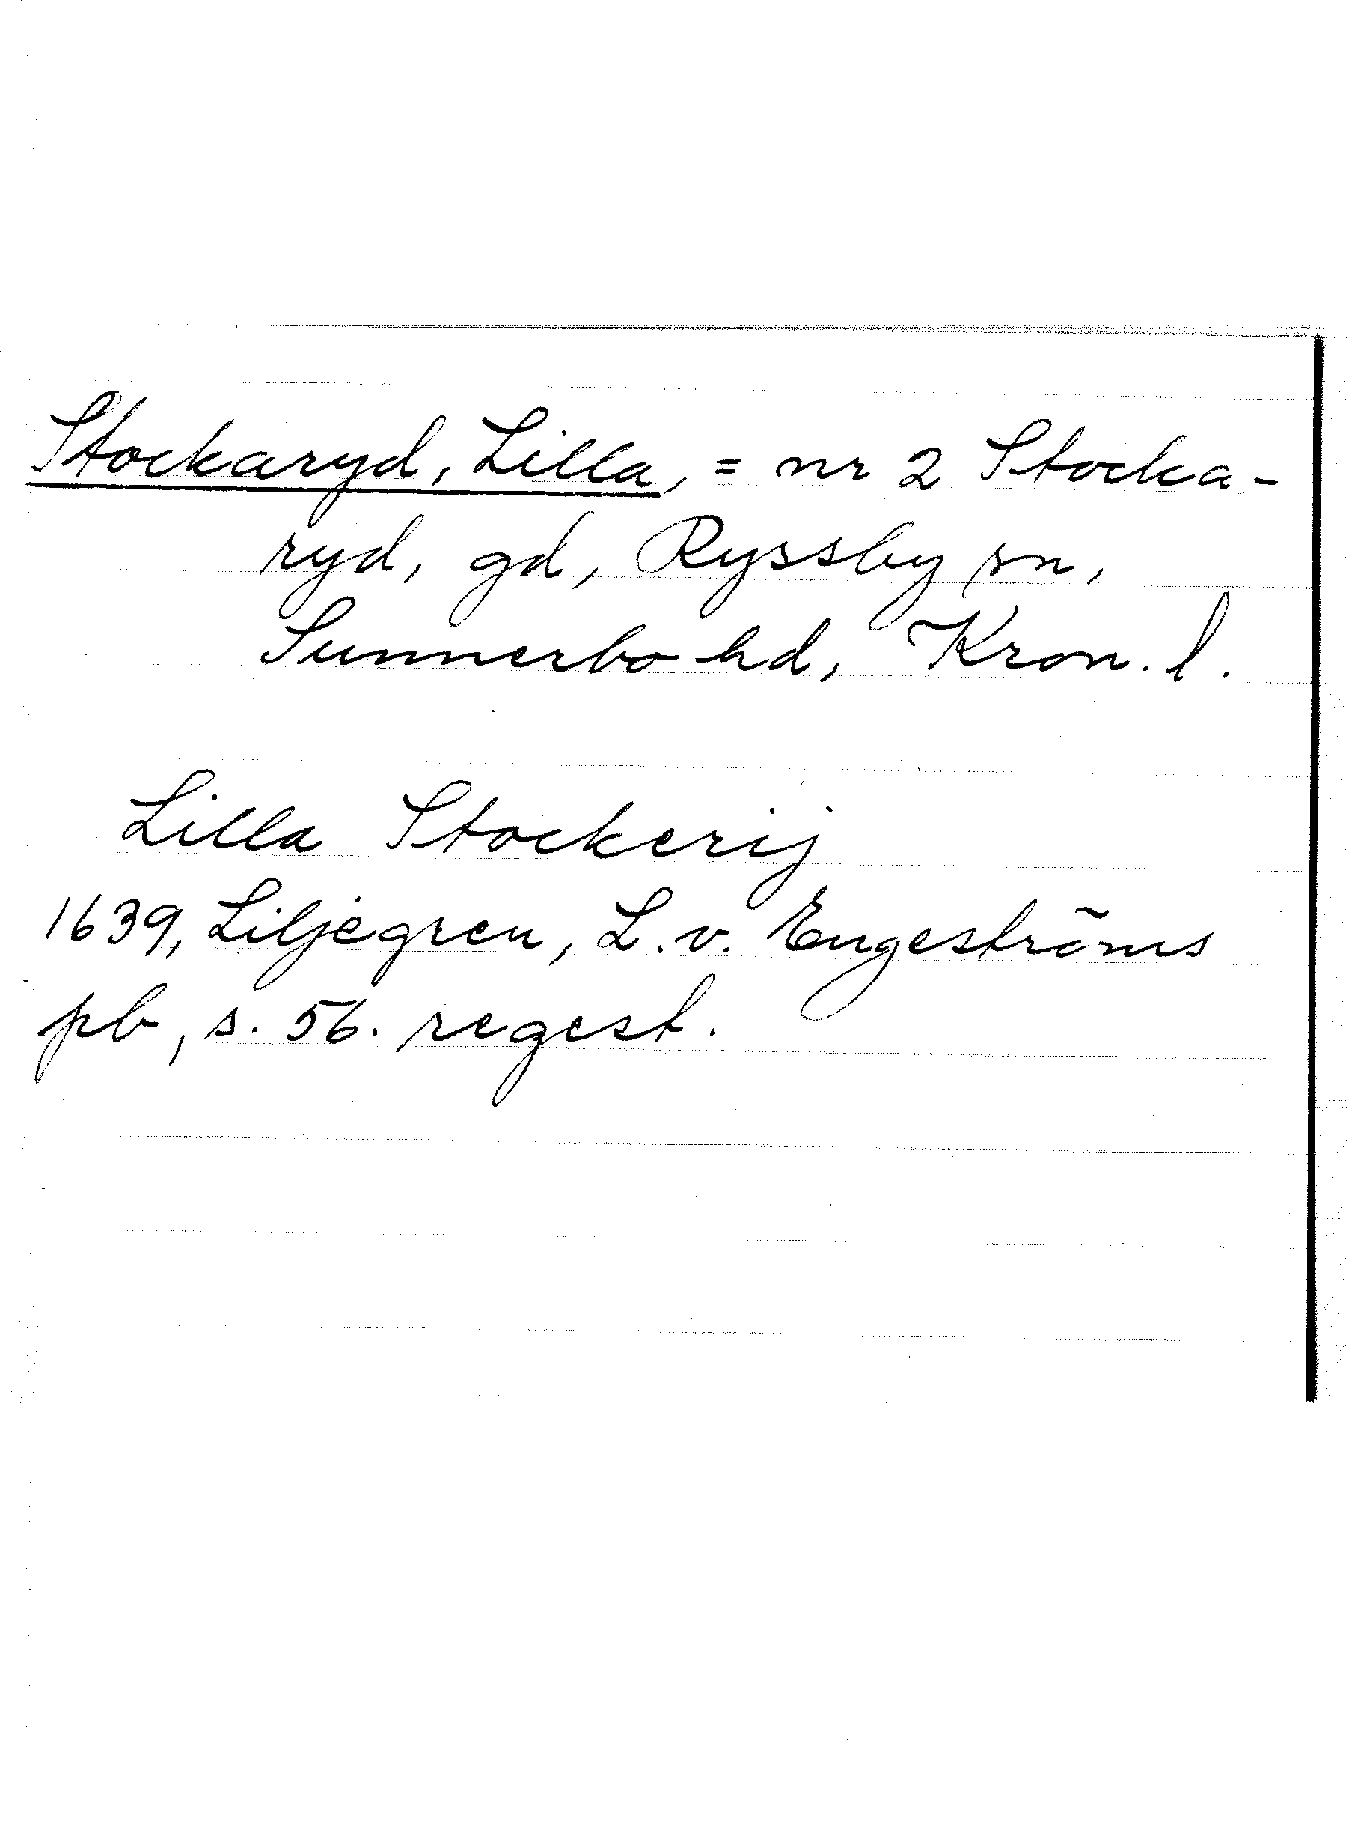 Stockaryd, Lilla, = nr 2 Stocka-
ryd, gd, Ryssby sn,
Sunnerbo hd, Kron. l.
Lilla Stockerij
1639, Liljegren, L. v. Engeströms
pb, s. 56. regest.